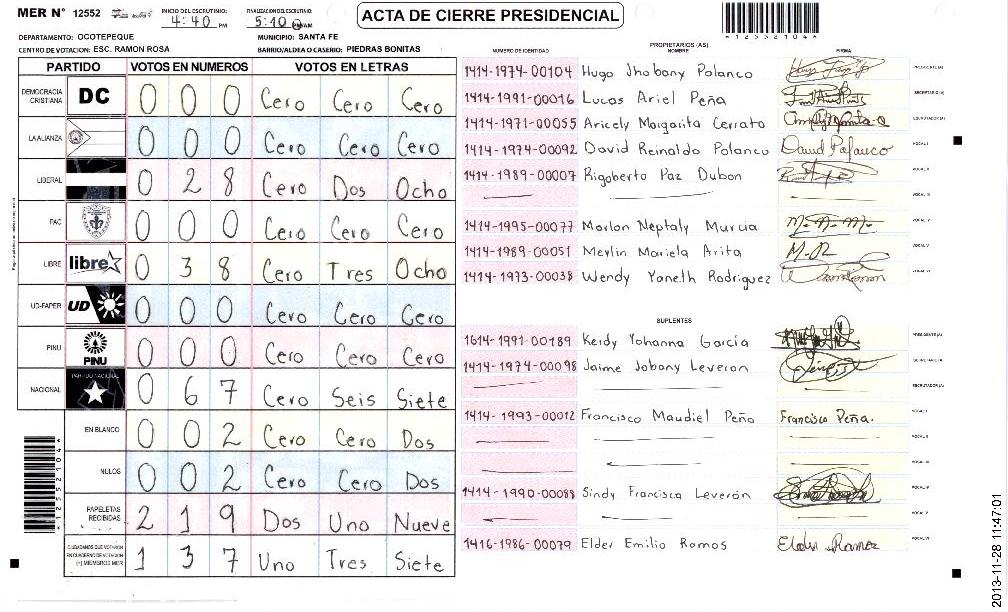 MER N° 12552
INICIO DEL ESCRUTINIO: 4:40 PM
FINALIZACION DEL ESCRUTINIO: 5:10 PM/AM
ACTA DE CIERRE PRESIDENCIAL
*1255210 4*
DEPARTAMENTO: OCOTEPEQUE
MUNICIPIO: SANTA FE
CENTRO DE VOTACION: ESC. RAMON ROSA
BARRIO/ALDEA O CASERIO: PIEDRAS BONITAS
PARTIDO VOTOS EN NUMEROS VOTOS EN LETRAS
DEMOCRACIA CRISTIANA DC 0 0 0 Cero Cero Cero
LA ALIANZA 0 0 0 Cero Cero Cero
LIBERAL 0 2 8 Cero Dos Ocho
PAC 0 0 0 Cero Cero Cero
LIBRE libre 0 3 8 Cero Tres Ocho
UD-FAPER UD 0 0 0 Cero Cero Cero
PINU PINU 0 0 0 Cero Cero Cero
NACIONAL PARTIDO NACIONAL 0 6 7 Cero Seis Siete
EN BLANCO 0 0 2 Cero Cero Dos
NULOS 0 0 2 Cero Cero Dos
PAPELETAS RECIBIDAS 2 1 9 Dos Uno Nueve
CIUDADANOS QUE VOTARON EN CUADERNO DE VOTACION (+) MIEMBROS MER 1 3 7 Uno Tres Siete
PROPIETARIOS (AS)
NUMERO DE IDENTIDAD NOMBRE FIRMA
1414-1974-00104 Hugo Jhobany Polanco PRESIDENTE (A)
1414-1991-00016 Lucas Ariel Peña SECRETARIO (A)
1414-1971-00055 Aricely Margarita Cerrato ESCRUTADOR (A)
1414-1974-00092 David Reinaldo Polanco David Polanco VOCAL I
1414-1989-00007 Rigoberto Paz Dubon VOCAL II
VOCAL III
1414-1995-00077 Marlon Neptaly Murcia M. N. M. VOCAL IV
1414-1989-00051 Merlin Mariela Arita VOCAL V
1414-1973-00038 Wendy Yaneth Rodriguez VOCAL VI
SUPLENTES
1614-1991-00189 Keidy Yohanna García PRESIDENTE (A)
1414-1974-00098 Jaime Jobany Leveron SECRETARIO A
ESCRUTADOR (A)
1414-1993-00012 Francisco Maudiel Peña Francisco Peña. VOCAL I
VOCAL II
VOCAL III
1414-1990-00088 Sindy Francisca Leverón VOCAL IV
VOCAL V
1416-1986-00079 Elder Emilio Ramos Elder Ramos VOCAL VI
2013-11-28 11:47:01